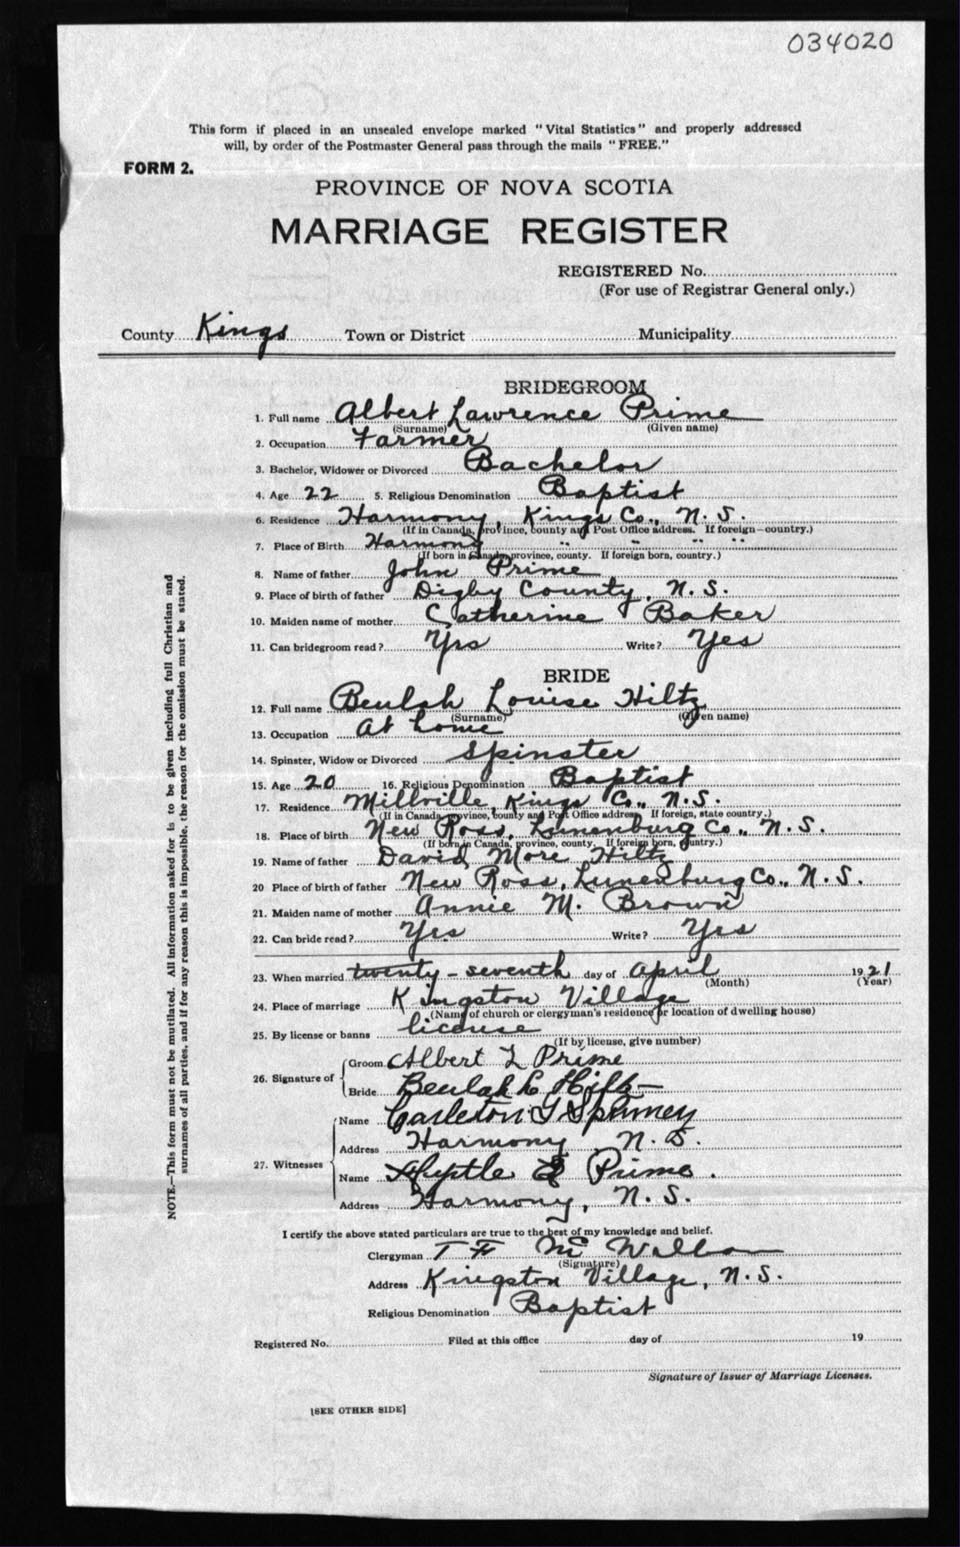 034020
This form if placed in an unsealed envelope marked "Vital Statistics" and properly addressed
will, by order of the Postmaster General pass through the mails "FREE."
FORM 2.
PROVINCE OF NOVA SCOTIA
MARRIAGE REGISTER
REGISTERED No.
(For use of Registrar General only.)
County Kings Town or District Municipality
BRIDEGROOM
1. Full name Albert Lawrence Prime
(Surname) (Given name)
2. Occupation Farmer
3. Bachelor, Widower or Divorced Bachelor
4. Age 22 5. Religious Denomination Baptist
6. Residence Harmony, Kings Co., N. S.
(If in Canada, province, county and Post Office address. If foreign—country.)
7. Place of Birth Harmony " " " "
(If born in Canada, province, county. If foreign born, country.)
8. Name of father John Prime
9. Place of birth of father Digby County, N. S.
10. Maiden name of mother Catherine Baker
11. Can bridegroom read? Yes Write? Yes
BRIDE
12. Full name Beulah Louise Hiltz
(Surname) (Given name)
13. Occupation At home
14. Spinster, Widow or Divorced Spinster
15. Age 20 16. Religious Denomination Baptist
17. Residence Millville, Kings Co., N. S.
(If in Canada, province, county and Post Office address. If foreign, state country.)
18. Place of birth New Ross, Lunenburg Co., N. S.
(If born in Canada, province, county. If foreign born, country.)
19. Name of father David More Hiltz
20 Place of birth of father New Ross, Lunenburg Co., N. S.
21. Maiden name of mother Annie M. Brown
22. Can bride read? Yes Write? Yes
23. When married twenty-seventh day of April 1921
(Month) (Year)
24. Place of marriage Kingston Village
(Name of church or clergyman's residence or location of dwelling house)
25. By license or banns license
(If by license, give number)
26. Signature of Groom Albert L Prime
Bride Beulah L Hiltz
27. Witnesses Name Carleton Spinney
Address Harmony N. S.
Name Prime.
Address Harmony, N. S.
I certify the above stated particulars are true to the best of my knowledge and belief.
Clergyman T F
(Signature)
Address Kingston Village, N. S.
Religious Denomination Baptist
Registered No. Filed at this office day of 19
Signature of Issuer of Marriage Licenses.
[SEE OTHER SIDE]
NOTE.—This form must not be mutilated. All information asked for is to be given including full Christian and
surnames of all parties, and if for any reason this is impossible, the reason for the omission must be stated.